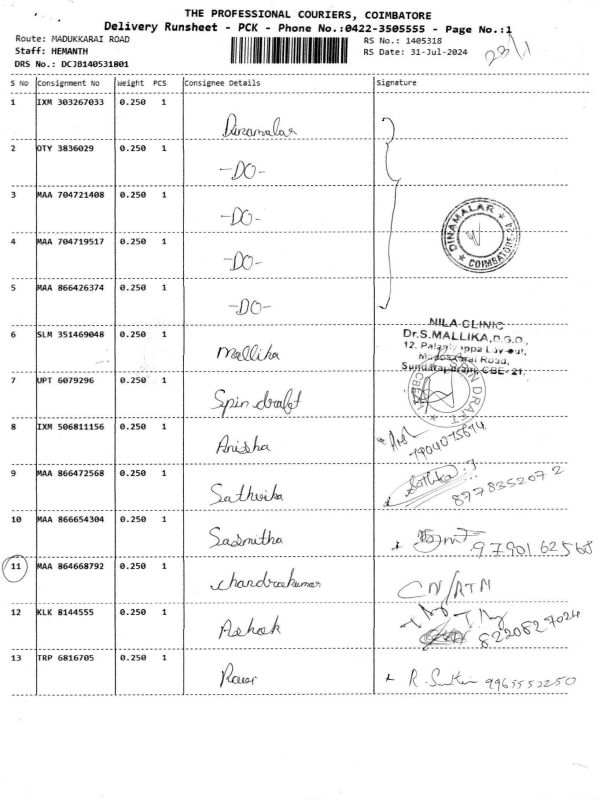 THE PROFESSIONAL COURIERS, COIMBATORE
Delivery Runsheet - PCK - Phone No.:0422-3505555 - Page No.:1
Route: MADUKKARAI ROAD
RS No.: 1405318
Staff: HEMANTH
RS Date: 31-Jul-2024
23/1
DRS No.: DCJB140531801
S No Consignment No Weight PCS Consignee Details Signature
1 IXM 303267033 0.250 1 Dinamalar
2 OTY 3836029 0.250 1 -DO-
3 MAA 704721408 0.250 1 -DO-
DINAMALAR
COIMBATORE-24
4 MAA 704719517 0.250 1 -DO-
5 MAA 866426374 0.250 1 -DO-
NILA CLINIC
Dr.S.MALLIKA,D.G.O.,
6 SLM 351469048 0.250 1 Mallika
Road,
Sundarapuram, CBE-21.
7 UPT 6079296 0.250 1 Spin draft
8 IXM 506811156 0.250 1 Anisha
9 MAA 866472568 0.250 1 Sathvika
8778352072
10 MAA 866654304 0.250 1 Sasmitha
9790162568
11 MAA 864668792 0.250 1 Chandrakumar CN/RTN
12 KLK 8144555 0.250 1 Ashok
8220827024
13 TRP 6816705 0.250 1 9965552250